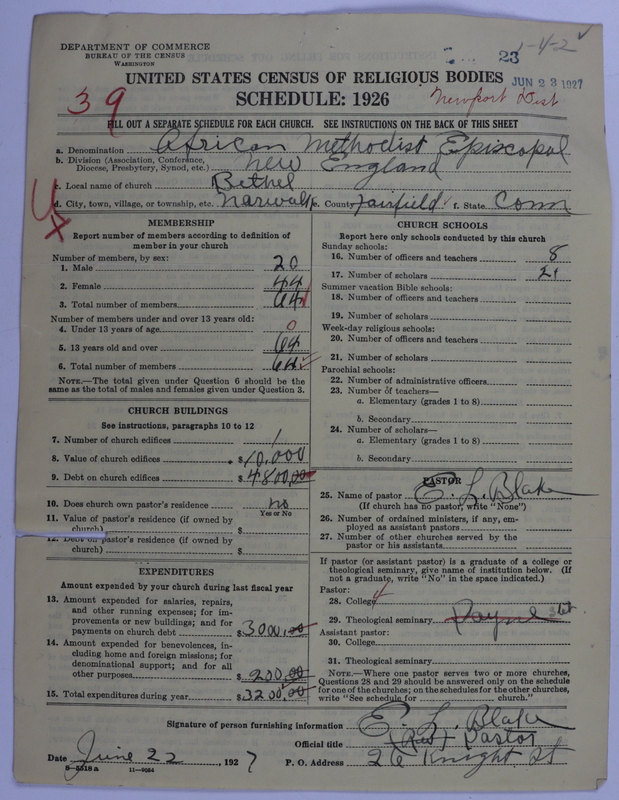 DEPARTMENT OF COMMERCE
BUREAU OF THE CENSUS
WASHINGTON
23 1-4-2
UNITED STATES CENSUS OF RELIGIOUS BODIES
JUN 23 1927
SCHEDULE: 1926
39
Newport Dist
FILL OUT A SEPARATE SCHEDULE FOR EACH CHURCH. SEE INSTRUCTIONS ON THE BACK OF THIS SHEET
a. Denomination African Methodist Episcopal
b. Division (Association, Conference, Diocese, Presbytery, Synod, etc.) New England
c. Local name of church Bethel
d. City, town, village, or township, etc. Narwalk e. County Fairfield f. State Conn
MEMBERSHIP
Report number of members according to definition of
member in your church
Number of members, by sex:
1. Male 20
2. Female 44
3. Total number of members 64
Number of members under and over 13 years old:
4. Under 13 years of age 0
5. 13 years old and over 64
6. Total number of members 64
NOTE.—The total given under Question 6 should be the
same as the total of males and females given under Question 3.
CHURCH BUILDINGS
See instructions, paragraphs 10 to 12
7. Number of church edifices 1
8. Value of church edifices $10,000
9. Debt on church edifices $4800.00
10. Does church own pastor's residence no
Yes or No
11. Value of pastor's residence (if owned by
church) $
12. Debt on pastor's residence (if owned by
church) $
EXPENDITURES
Amount expended by your church during last fiscal year
13. Amount expended for salaries, repairs,
and other running expenses; for im-
provements or new buildings; and for
payments on church debt $3000.00
14. Amount expended for benevolences, in-
cluding home and foreign missions; for
denominational support; and for all
other purposes $200.00
15. Total expenditures during year $3200.00
CHURCH SCHOOLS
Report here only schools conducted by this church
Sunday schools:
16. Number of officers and teachers 8
17. Number of scholars 21
Summer vacation Bible schools:
18. Number of officers and teachers
19. Number of scholars
Week-day religious schools:
20. Number of officers and teachers
21. Number of scholars
Parochial schools:
22. Number of administrative officers
23. Number of teachers—
a. Elementary (grades 1 to 8)
b. Secondary
24. Number of scholars—
a. Elementary (grades 1 to 8)
b. Secondary
PASTOR
25. Name of pastor E. L. Blake
(If church has no pastor, write "None")
26. Number of ordained ministers, if any, em-
ployed as assistant pastors
27. Number of other churches served by the
pastor or his assistants
If pastor (or assistant pastor) is a graduate of a college or
theological seminary, give name of institution below. (If
not a graduate, write "No" in the space indicated.)
Pastor:
28. College
29. Theological seminary Payne
Assistant pastor:
30. College
31. Theological seminary
NOTE.—Where one pastor serves two or more churches,
Questions 28 and 29 should be answered only on the schedule
for one of the churches; on the schedules for the other churches,
write "See schedule for church."
Signature of person furnishing information E. L. Blake
Official title (Rev) Pastor
Date June 22, 1927 P. O. Address 26 Knight St
8-5518 a 11-9084